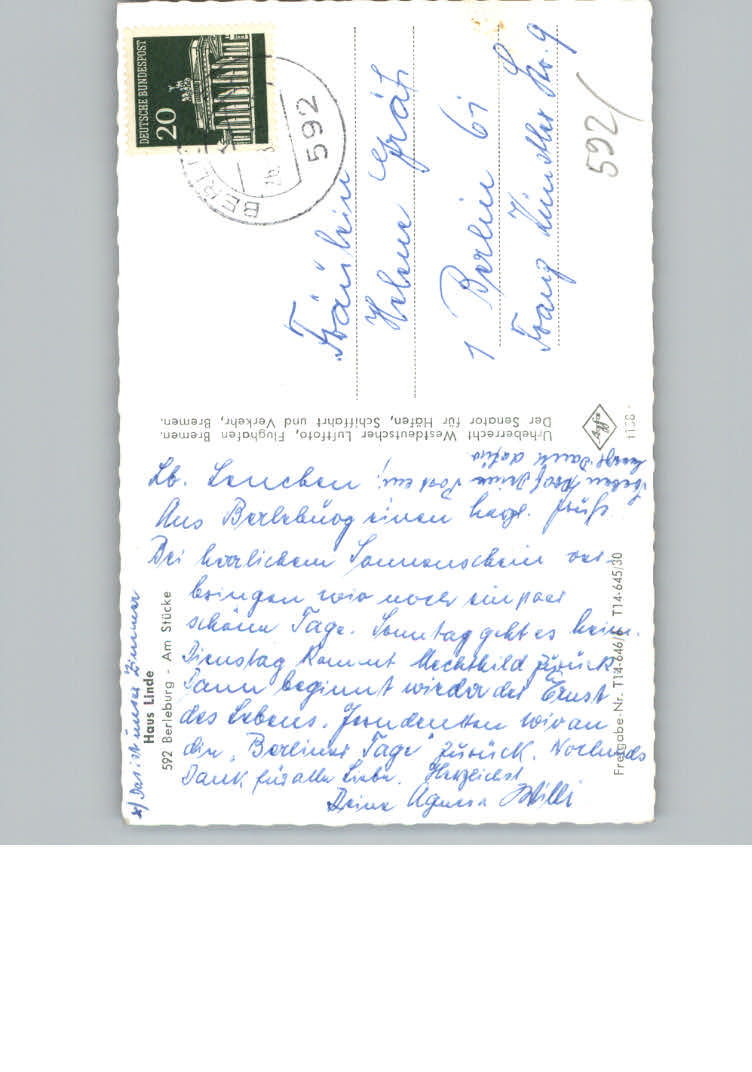 DEUTSCHE BUNDESPOST
20
592
592/
Fräulein
Helene Gräf
1 Berlin 61
Franz Künstler Str. 9
Urheberrecht Westdeutscher Luftfoto, Flughafen Bremen.
Der Senator für Häfen, Schiffahrt und Verkehr, Bremen.
Agfa
Lb. Lenchen!
soeben traf Deine Post ein,
herzl. Dank dafür
Aus Berleburg einen herzl. Gruß.
Bei herrlichem Sonnenschein ver-
bringen wir noch ein paar
schöne Tage. Sonntag geht es heim.
Dienstag kommt Mechthild zurück.
Dann beginnt wieder der Ernst
des Lebens. Gern denken wir an
die „Berliner Tage" zurück. Nochmals
Dank für alle Liebe. Herzlichst
Deine Agnes Willi
x) Das ist unser Zimmer
Haus Linde
592 Berleburg - Am Stücke
Freigabe-Nr. T14-646/ T14-645/30